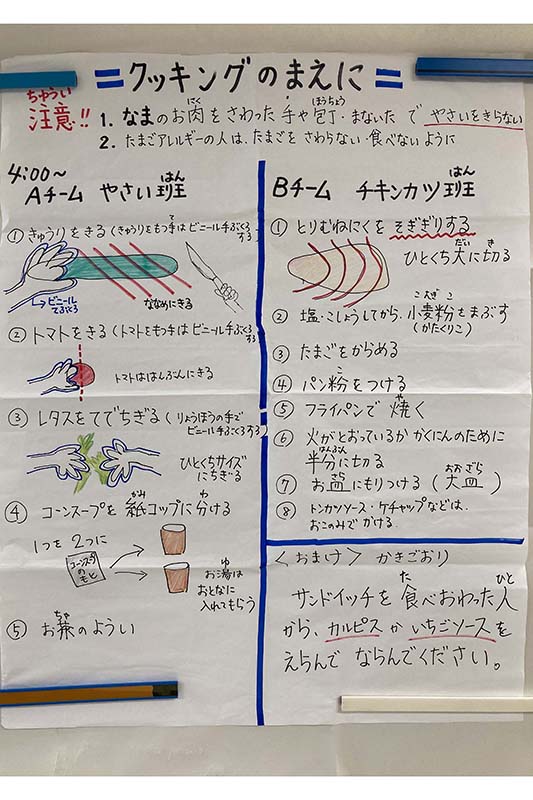 =クッキングのまえに=
ちゅうい
注意!!
にく ほうちょう
1. なまのお肉をさわった手や包丁・まないたで やさいをきらない
2. たまごアレルギーの人は、たまごをさわらない・食べないように
4:00~
はん
Aチーム やさい班
① きゅうりをきる(きゅうりをもつ手はビニール手ぶくろする)
て
→ビニールてぶくろ
ななめにきる
② トマトをきる(トマトをもつ手はビニール手ぶくろする)
トマトははんぶんにきる
③ レタスをてでちぎる(りょうほうの手で
ビニール手ぶくろする)
ひとくちサイズ
にちぎる
かみ わ
④ コーンスープを紙コップに分ける
1つを2つに
コーンスープ
のもと
ゆ
お湯は
おとなに
入れてもらう
ちゃ
⑤ お茶のようい
はん
Bチーム チキンカツ班
① とりむねにくをそぎぎりする
だい き
ひとくち大に切る
こむぎこ
② 塩・こしょうしてから、小麦粉をまぶす
(かたくりこ)
③ たまごをからめる
こ
④ パン粉をつける
や
⑤ フライパンで焼く
⑥ 火がとおっているか かくにんのために
はんぶん
半分に切る
さら おおざら
⑦ お皿にもりつける(大皿)
⑧ トンカツソース・ケチャップなどは、
おこのみでかける.
<おまけ> かきごおり
た ひと
サンドイッチを食べおわった人
から、カルピスかいちごソースを
えらんでならんでください。